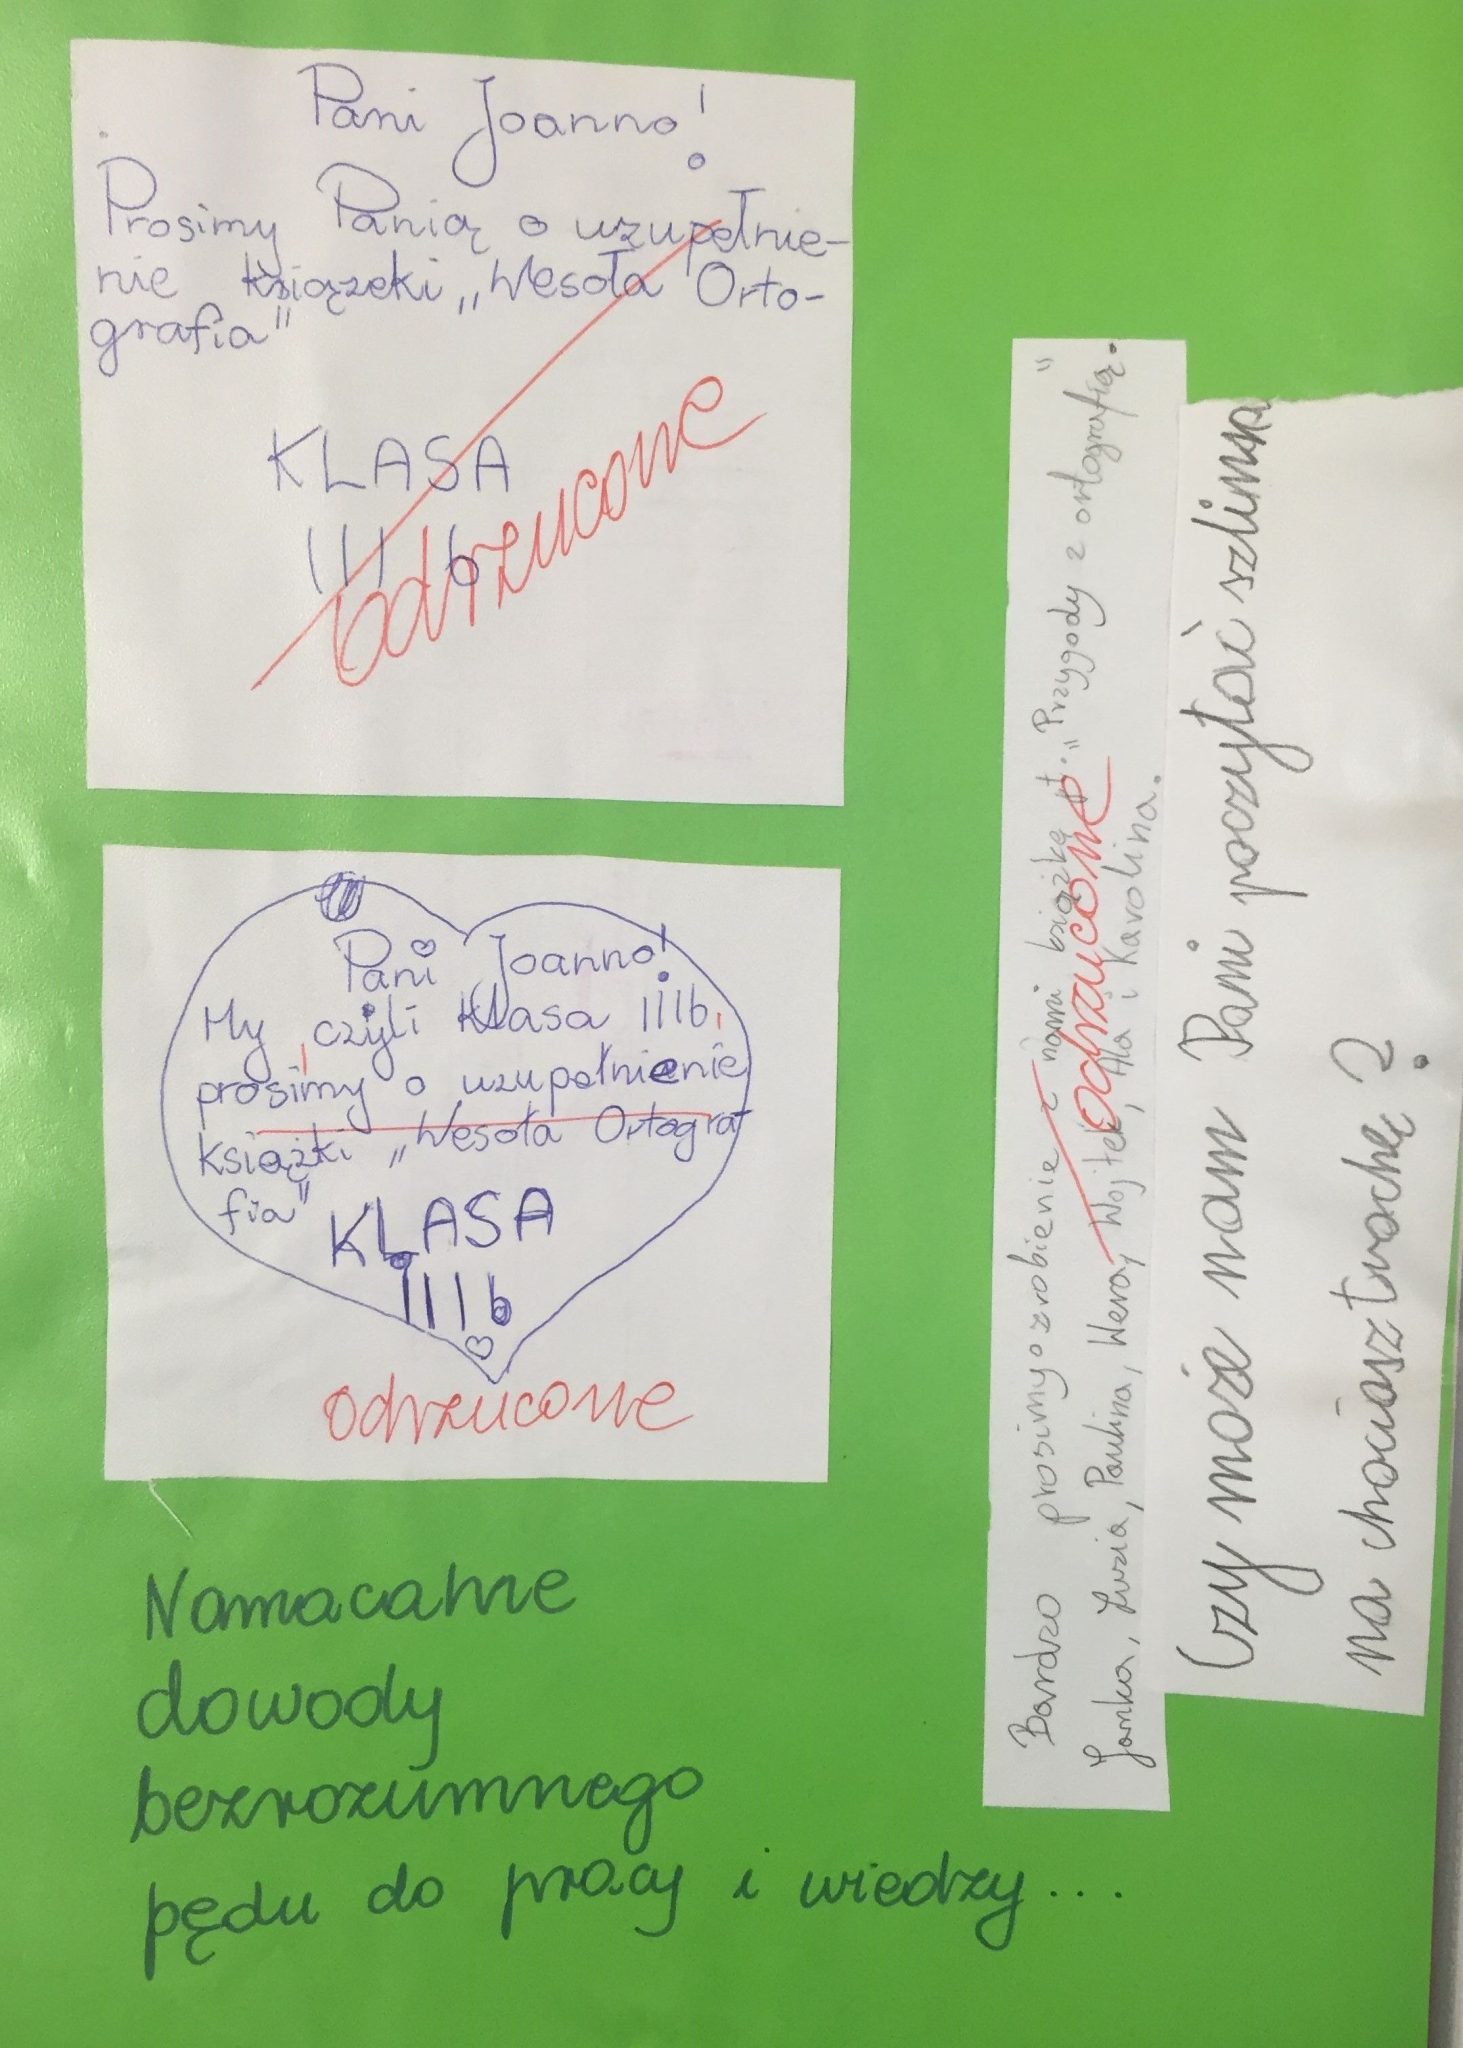 Pani Joanno!
Prosimy Panią o uzupełnie-
nie książeki „Wesoła Orto-
grafia"
KLASA
III b
odrzucone
Pani Joanno!
My, czyli klasa IIIb,
prosimy o uzupełnienie
książki „Wesoła Ortograf
fia"
KLASA
IIIb
odrzucone
Bardzo prosimy o zrobienie z nami książką pt. „Przygody z ortografią".
Janka, Luzia, Paulina, Wera, Wojtek, Ala i Karolina.
odrzucone
Czy może nam Pani poczytać szlimę
na chociasz trochę?
Namacalne
dowody
bezrozumnego
pędu do pracy i wiedzy...